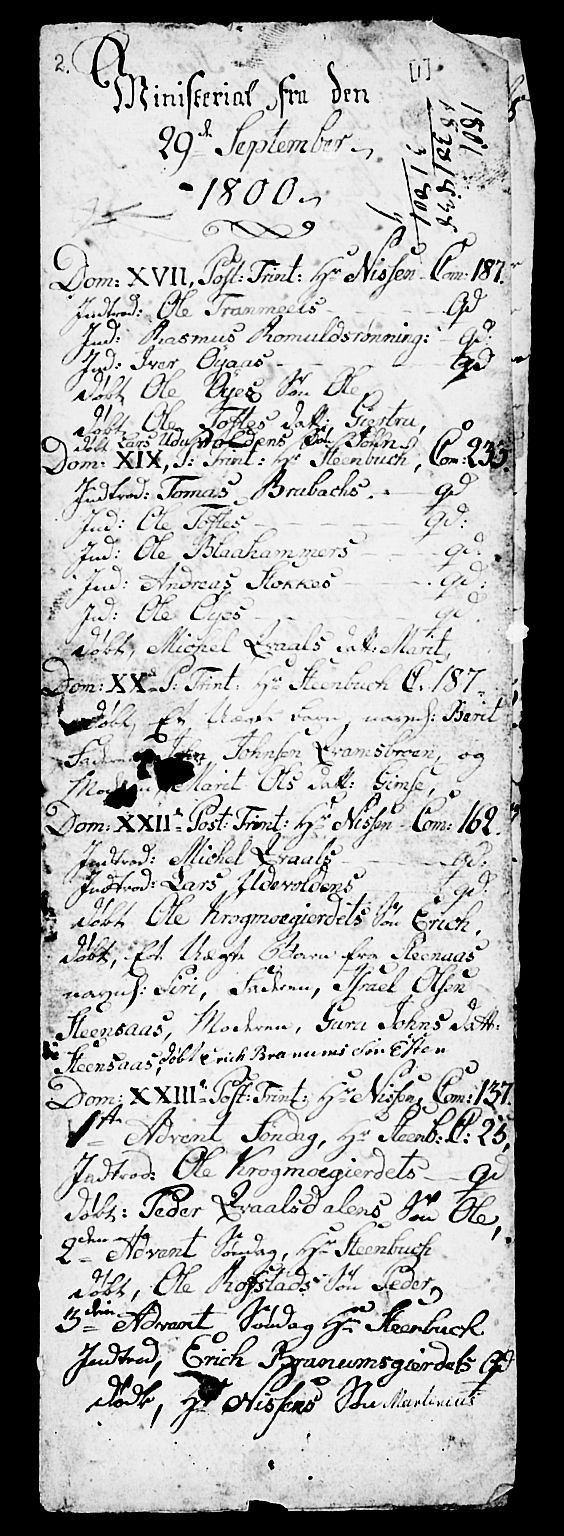 2.
[1]
Ministerial fra den
29de September
1800
1801
Dom: XVII, Post: Trint: Hr Nissen Com: 187.
Indtrod: Ole Tranmoels qd
Ind: Rasmus Romuldsrønning: qd:
Ind: Iver Øyaas qd
døbt Ole Øyes Søn Ole
døbt Ole Toftes datt: Giertru,
døbt Lars Uduvoldens John
Dom: XIX, P: Trint: Hr Steenbuch, Com: 235.
Indtrod: Tomas Brubachs. qd
Ind: Ole Toftes qd:
Ind: Ole Blaahammers qd:
Ind: Andreas Stokkes qd:
Ind: Ole Øyes qd.
døbt, Michel Qvaals datt: Marit,
Dom: XX P: Trint: Hr Steenbuch C. 187
døbt, Et Uægte barn, navnl: Berit
Faderen Johnsen Qvamsbroen, og
Moderen, Marit Ols datt: Gimse,
Dom: XXII Post: Trint: Hr Nissen Com: 162.
Indtrod: Michel Qvaals qd:
Indtrod: Lars Udevoldens qd:
døbt Ole Krogmoegierdets Søn Erich,
døbt, Et Uægte Barn fra Steenaas
navnl: Siri, Faderen, Israel Olsen
Steensaas, Moderen, Guru Johns datt:
Steensaas, døbt Erich Branums Søn Esten
Dom: XXIII Post: Trint: Hr Nissen, Com: 137.
1te Advent Søndag, Hr Steenb: C: 25,
Indtrod: Ole Krogmoegierdets qd
døbt: Peder Qvaalsdalens Søn Ole,
2den Advent Søndag, Hr Steenbuch
døbt, Ole Rofstads Søn Peder,
3die Advent Søndag Hr Steenbuch
Indtrod, Erich Branumsgierdets qd
døbt, Hr Nissens Søn Martinus